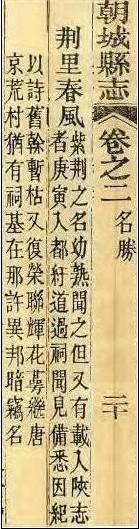 朝城縣志
卷之二 名勝 二十
荆里春風
紫荆之名幼熟聞之但又有載入陝志
者庚寅入都紆道過祠聞見備悉因紀
以詩舊幹暫枯又復榮聯輝花萼繼唐
京荒村猶有祠基在那許異邦暗竊名